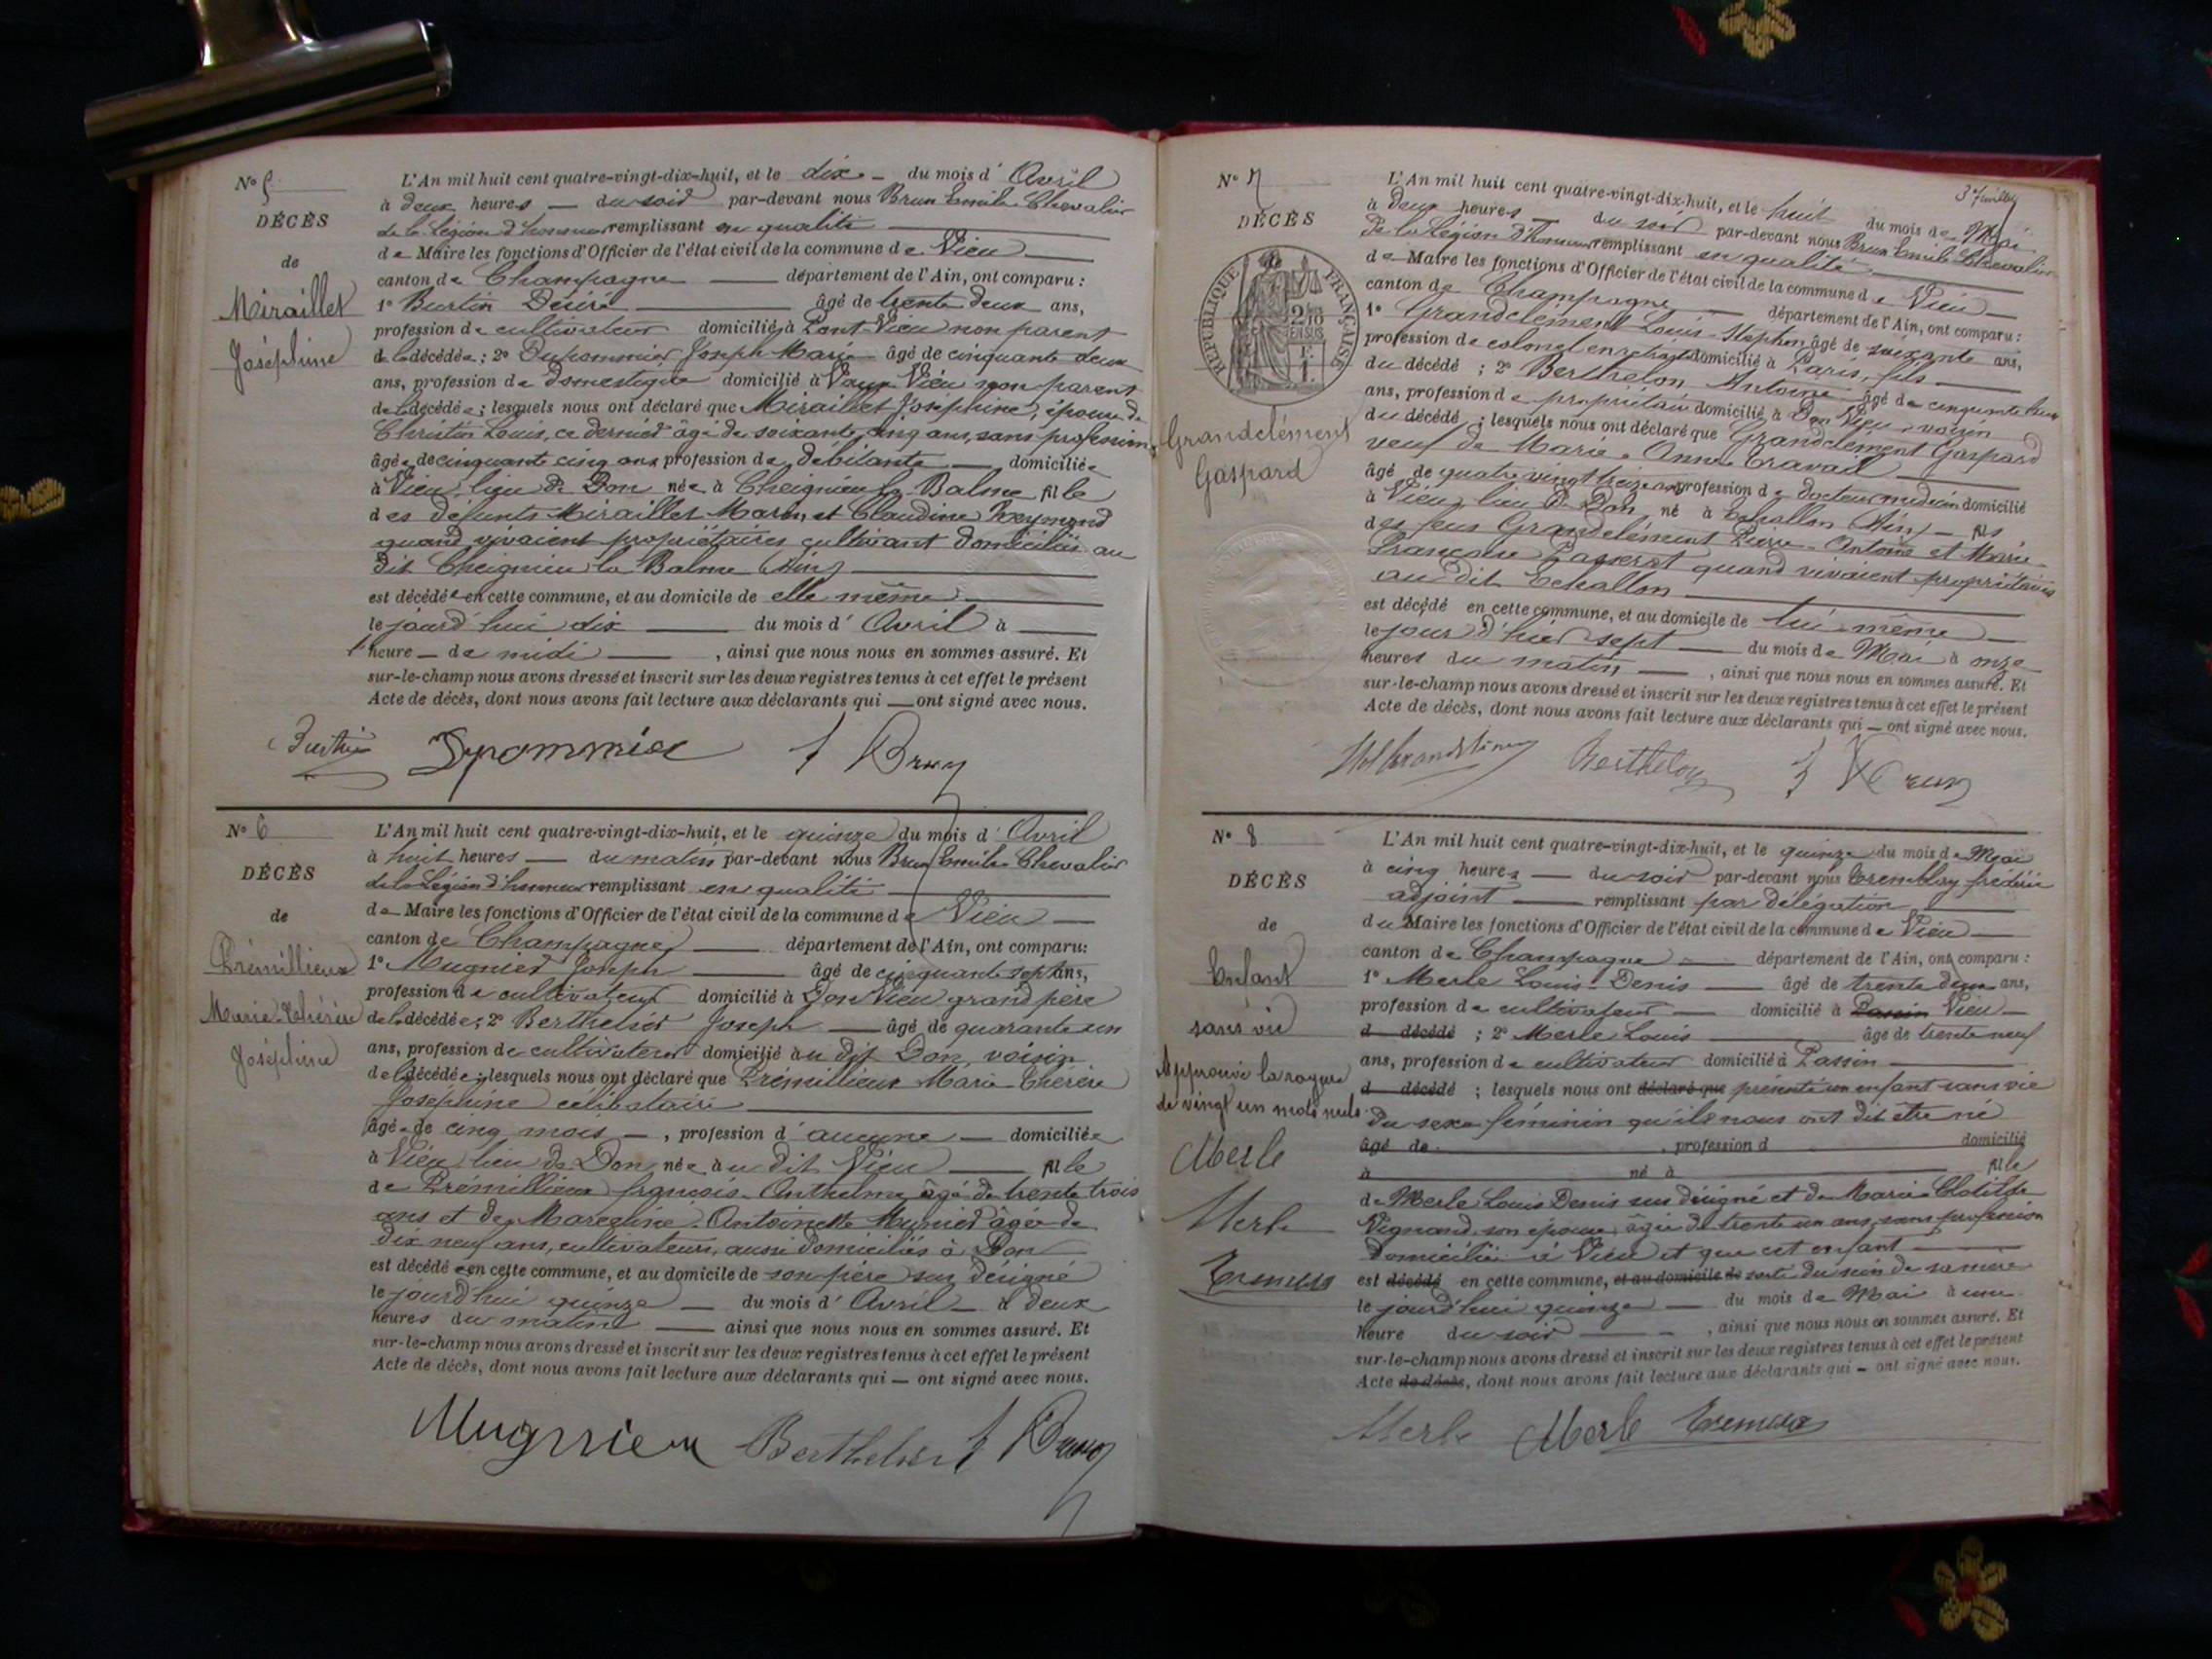 N° 5
DÉCÈS
de
Miraillet
Joséphine
L'An mil huit cent quatre-vingt-dix-huit, et le dix du mois d'Avril
à deux heures du soir par-devant nous Brun Emile Chevalier
de la Légion d'honneur remplissant en qualité
de Maire les fonctions d'Officier de l'état civil de la commune de Vieu
canton de Champagne département de l'Ain, ont comparu :
1° Burtin Désiré âgé de trente deux ans,
profession de cultivateur domicilié à Pont Vieu non parent
de la décédée ; 2° Dupommier Joseph Marie âgé de cinquante deux
ans, profession de domestique domicilié à Vaux Vieu non parent
de la décédée ; lesquels nous ont déclaré que Miraillet Joséphine, épouse de
Christin Louis, ce dernier âgé de soixante cinq ans, sans profession
âgée de cinquante cinq ans profession de débitante domiciliée
à Vieu, lieu de Don née à Cheignieu la Balme fille
des défunts Miraillet et Claudine Reymond
quand vivaient propriétaires cultivant domiciliés au
dit Cheignieu la Balme (Ain)
est décédée en cette commune, et au domicile de elle même
le jourd'hui dix du mois d'Avril à
heure de midi , ainsi que nous nous en sommes assuré. Et
sur-le-champ nous avons dressé et inscrit sur les deux registres tenus à cet effet le présent
Acte de décès, dont nous avons fait lecture aux déclarants qui ont signé avec nous.
Burtin Dpommier Brun
N° 6
DÉCÈS
de
Prémillieux
Marie Thérèse
Joséphine
L'An mil huit cent quatre-vingt-dix-huit, et le quinze du mois d'Avril
à huit heures du matin par-devant nous Brun Emile Chevalier
de la Légion d'honneur remplissant en qualité
de Maire les fonctions d'Officier de l'état civil de la commune de Vieu
canton de Champagne département de l'Ain, ont comparu :
1° Mugnier Joseph âgé de cinquante sept ans,
profession de cultivateur domicilié à Don Vieu grand père
de la décédée ; 2° Berthelier Joseph âgé de quarante un
ans, profession de cultivateur domicilié au dit Don, voisin
de la décédée ; lesquels nous ont déclaré que Prémillieux Marie Thérèse
Joséphine célibataire
âgée de cinq mois , profession d'aucune domiciliée
à Vieu lieu de Don, née au dit Vieu fille
de Prémillieux françois Anthelme âgé de trente trois
ans et de Antoinette Munier âgée de
dix neuf ans, cultivateurs, aussi domiciliés à Don
est décédée en cette commune, et au domicile de son père sus désigné
le jourd'hui quinze du mois d'Avril à deux
heures du matin ainsi que nous nous en sommes assuré. Et
sur-le-champ nous avons dressé et inscrit sur les deux registres tenus à cet effet le présent
Acte de décès, dont nous avons fait lecture aux déclarants qui ont signé avec nous.
Mugnier Berthelier Brun
N° 7
DÉCÈS
RÉPUBLIQUE FRANÇAISE
2/10 EN SUS
Grandclément
Gaspard
L'An mil huit cent quatre-vingt-dix-huit, et le huit du mois de Mai
à deux heures du soir par-devant nous Brun Emile Chevalier
de la Légion d'honneur remplissant en qualité
de Maire les fonctions d'Officier de l'état civil de la commune de Vieu
canton de Champagne département de l'Ain, ont comparu :
1° Grandclément Louis Stephen âgé de soixante ans,
profession de colonel en retraite domicilié à Paris, fils
du décédé ; 2° Berthelon Antoine âgé de cinquante
ans, profession de propriétaire domicilié à Don Vieu, voisin
du décédé ; lesquels nous ont déclaré que Grandclément Gaspard
veuf de Marie Anne Travail
âgé de quatre vingt treize ans profession de docteur médecin domicilié
à Vieu, lieu de Don né à Echallon (Ain) fils
des feus Grandclément Pierre Antoine et Marie
Françoise Passerat quand vivaient propriétaires
au dit Echallon
est décédé en cette commune, et au domicile de lui-même
le jour d'hier sept du mois de Mai à onze
heures du matin , ainsi que nous nous en sommes assuré. Et
sur-le-champ nous avons dressé et inscrit sur les deux registres tenus à cet effet le présent
Acte de décès, dont nous avons fait lecture aux déclarants qui ont signé avec nous.
Berthelon Brun
N° 8
DÉCÈS
de
Enfant
sans vie
Approuvé la rayure
de vingt un mots nuls.
Merle
Merle
L'An mil huit cent quatre-vingt-dix-huit, et le quinze du mois de Mai
à cinq heures du soir par-devant nous Tremblay frédéric
adjoint remplissant par délégation
du Maire les fonctions d'Officier de l'état civil de la commune de Vieu
canton de Champagne département de l'Ain, ont comparu :
1° Merle Louis Denis âgé de trente deux ans,
profession de cultivateur domicilié à Passin Vieu
d décédé ; 2° Merle Louis âgé de trente neuf
ans, profession de cultivateur domicilié à Passin
d décédé ; lesquels nous ont déclaré que présenté un enfant sans vie
du sexe féminin qu'ils nous ont dit être né
âgé de , profession d domicilié
à né à fille
de Merle Louis Denis sus désigné et de Marie Clotilde
Vignand son épouse, âgée de trente un ans, sans profession
domiciliée à Vieu et que cet enfant
est décédé en cette commune, et au domicile de sorti du sein de sa mère
le jourd'hui quinze du mois de Mai à une
heure du soir , ainsi que nous nous en sommes assuré. Et
sur-le-champ nous avons dressé et inscrit sur les deux registres tenus à cet effet le présent
Acte de décès, dont nous avons fait lecture aux déclarants qui ont signé avec nous.
Merle Merle